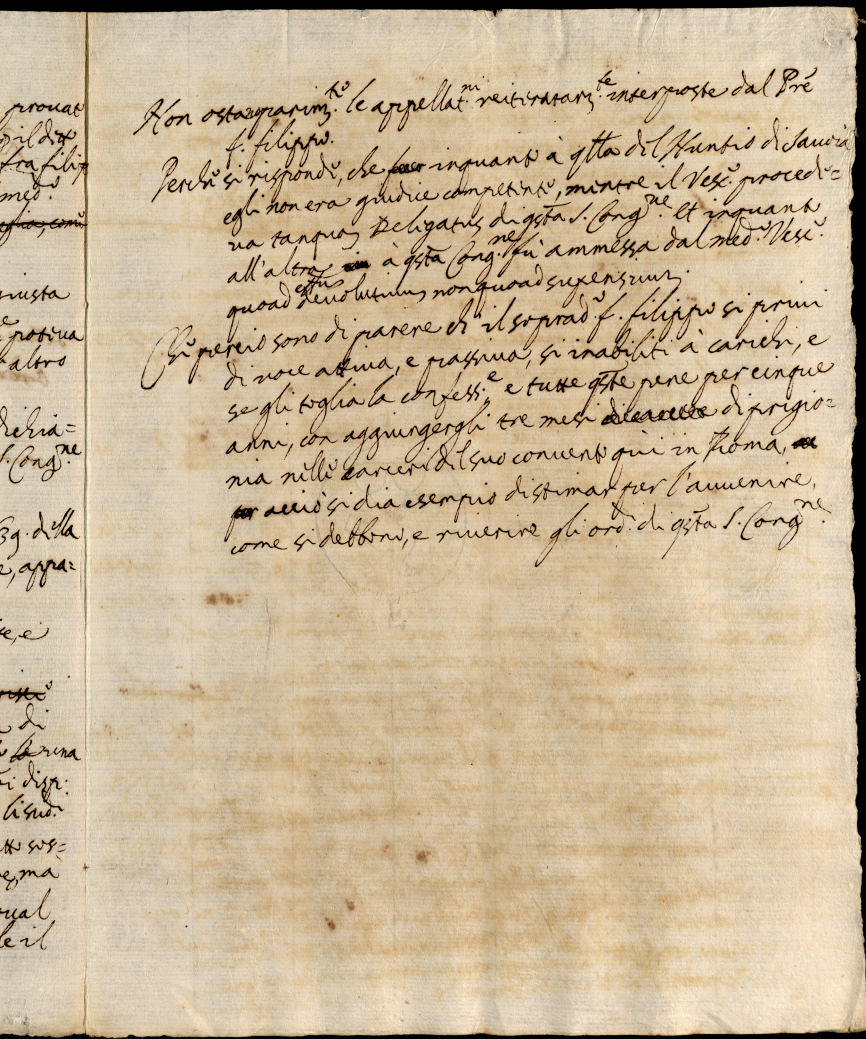 prouat
il dꝰ
fra filip
med.º
giusta
poteua
altro
dichia=
S. Cong.ne
39. della
e, appa=
se, e
di
una
di disp.
li sud.i
sos=
ma
tual
le il
Non osta le appellat.ni reiteratam.te interposte dal Pre
f. filippo.
Perche si risponde, che inquanto à qlla del Nuntio di Sauoia
egli non era giudice competente, mentre il Vesc.º procede=
ua tanquam Delegatus di qsta S. Cong.ne Et inquanto
all'altra à qsta Cong.ne fù ammessa dal med.º Vesc.º
quoad effectum deuolutiuum non quoad suspensiuum.
Che perciò sono di parere ch' il soprad.º f. filippo si priui
di uoce attiua, e passiua, si inabiliti à carichi, e
se gli toglia la confess.e e tutte qste pene per cinque
anni, con aggiungergli tre mesi di carcere di prigio=
nia nelle carceri del suo conuento quì in Roma,
acciò si dia esempio di stimar per l'auuenire,
come si debbono, e riuerire gli ord.i di qsta S. Cong.ne